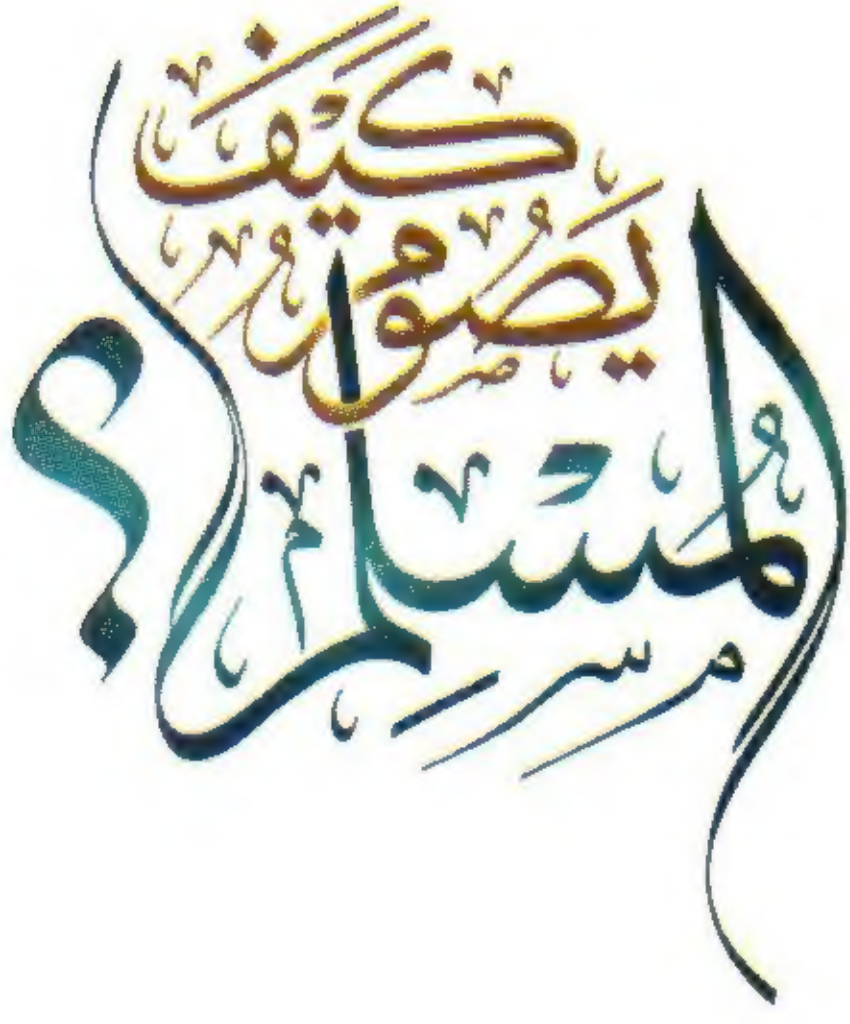 كَيْفَ
يَصُومُ
المُسْلِمُ؟